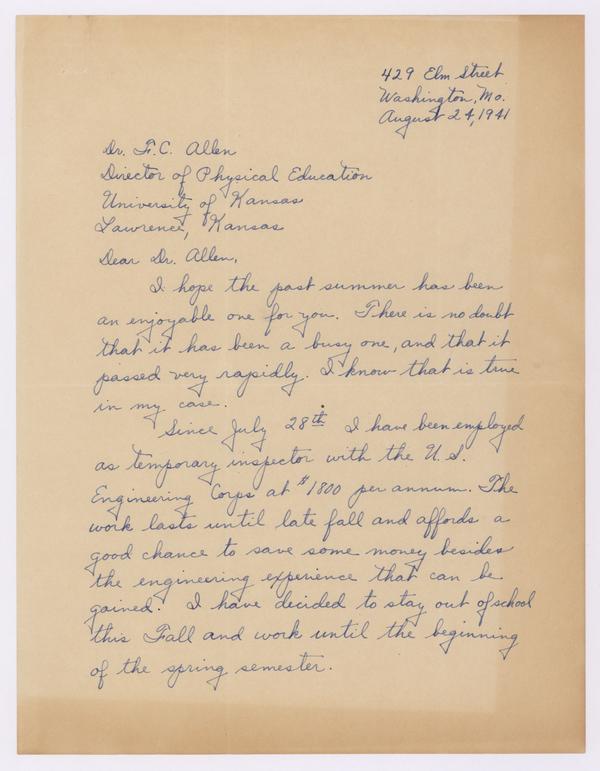 429 Elm Street
Washington, Mo.
August 24, 1941
Dr. F.C. Allen
Director of Physical Education
University of Kansas
Lawrence, Kansas
Dear Dr. Allen,
I hope the past summer has been
an enjoyable one for you. There is no doubt
that it has been a busy one, and that it
passed very rapidly. I know that is true
in my case.
Since July 28th I have been employed
as temporary inspector with the U.S.
Engineering Corps at $1800 per annum. The
work lasts until late fall and affords a
good chance to save some money besides
the engineering experience that can be
gained. I have decided to stay out of school
this Fall and work until the beginning
of the spring semester.